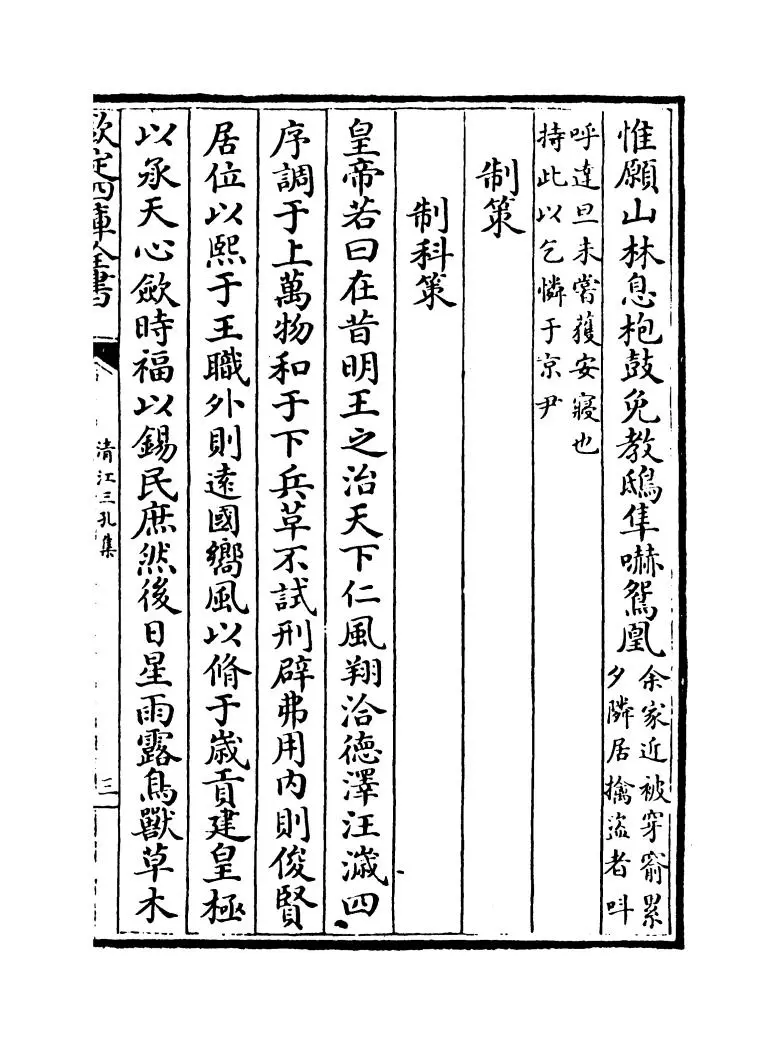 惟願山林息枹鼓免教鴟隼嚇鴛凰余家近被穿窬累
夕隣居擒盜者呌
呼達旦未嘗獲安寢也
持此以乞憐于京尹
制策
制科策
皇帝若曰在昔明王之治天下仁風翔洽徳澤汪濊四
序調于上萬物和于下兵革不試刑辟弗用内則俊賢
居位以熙于王職外則逺國嚮風以脩于歳貢建皇極
以承天心歛時福以錫民庶然後日星雨露鳥獸草木
欽定四庫全書
清江三孔集
三